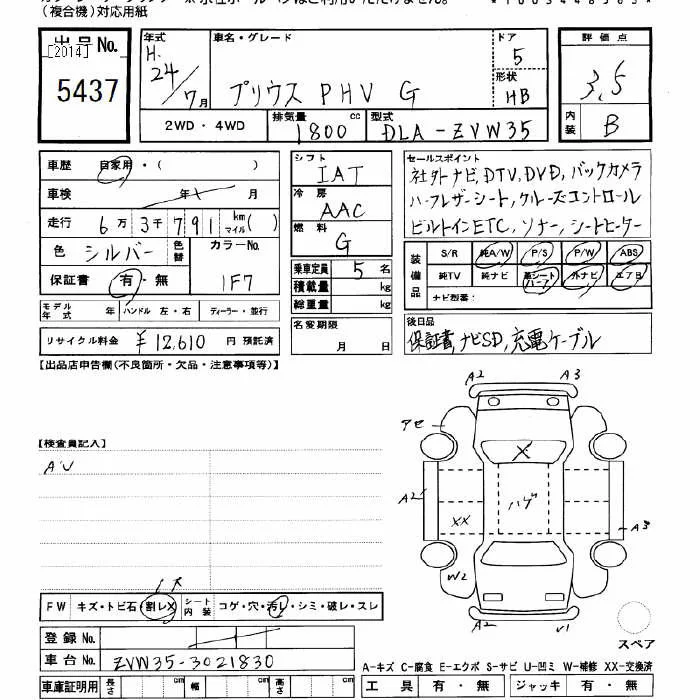 (複合機)対応用紙
出品No.
[2014]
5437
年式
H.
24/7月
車名・グレード
プリウス PHV G
ドア
5
形状
HB
評価点
3.5
内装
B
2WD・4WD
排気量
1800 cc
型式
DLA-ZVW35
車歴 自家用・( )
車検 年 月
走行 6万3千791 km マイル( )
色 シルバー 色替 カラーNo.
1F7
保証書 有・無
モデル年式 年 ハンドル 左・右 ディーラー・並行
リサイクル料金 ¥12,610 円 預託済
シフト
IAT
冷房
AAC
燃料
G
乗車定員 5 名
積載量 kg
総重量 kg
名変期限
月 日
セールスポイント
社外ナビ,DTV,DVD,バックカメラ
ハーフレザーシート,クルーズコントロール
ビルトインETC,ソナー,シートヒーター
装備品
S/R 純A/W P/S P/W ABS
純TV 純ナビ 革シートハーフ 外ナビ エアB
ナビ型番:
後日品
保証書,ナビSD,充電ケーブル
【出品店申告欄(不良箇所・欠品・注意事項等)】
【検査員記入】
AU
A2 A3
アセ
X
A2
ハゲ
XX
A3
W2
A2 V1
スペア
FW キズ・トビ石・割レX シート内装 コゲ・穴・汚レ・シミ・破レ・スレ
登録No.
車台No. ZVW35-3021830
車庫証明用 長さ cm 幅 cm 高さ cm
A-キズ C-腐食 E-エクボ S-サビ U-凹ミ W-補修 XX-交換済
工具 有・無 ジャッキ 有・無